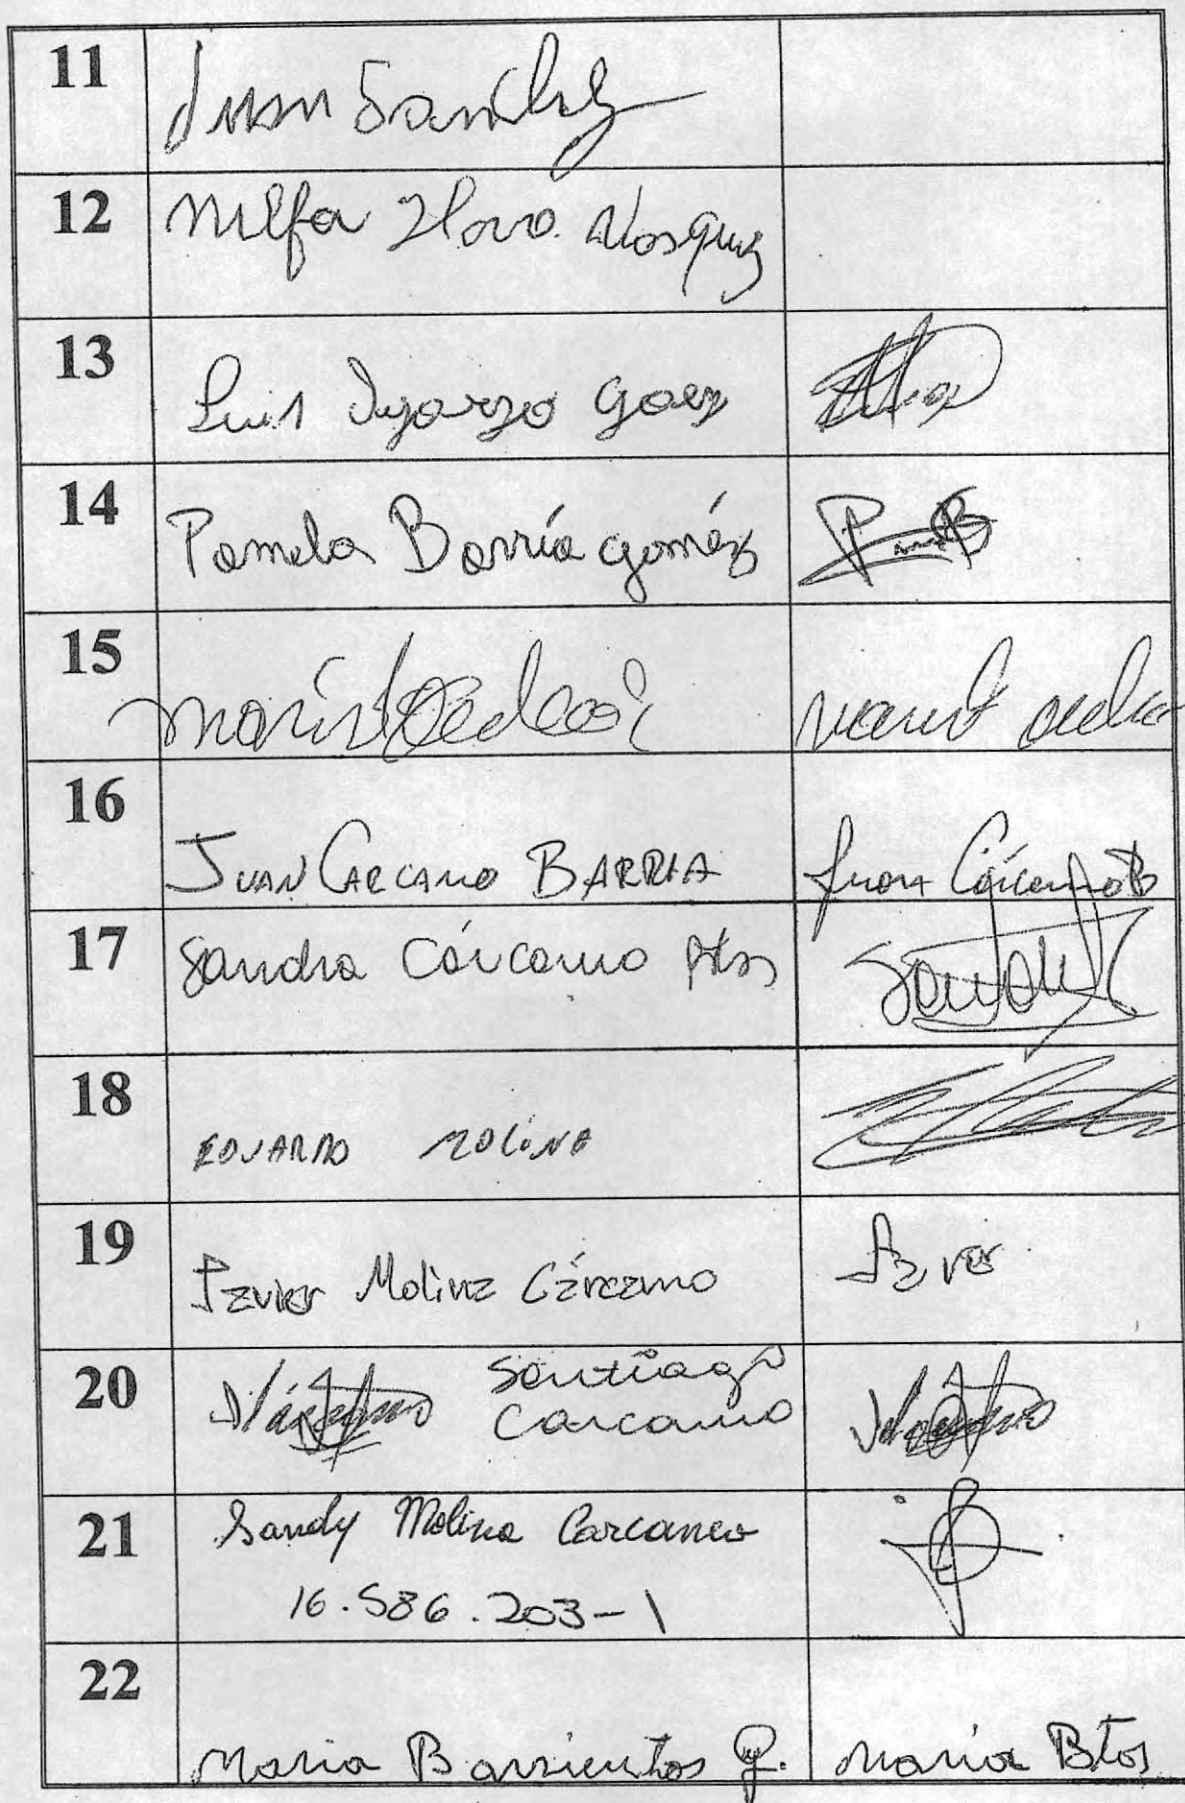 11 Juan Sanchez
12 Nilfa Haro Vasquez
13 Luis Oyarzo Gaez
14 Pamela Barría Goméz
15
16 JUAN CARCAMO BARRIA Juan Cárcamo B
17 Sandra Cárcamo
18 EDUARDO MOLINA
19 Javier Molina Cárcamo Javier
20 Santiago
Carcamo
21 Sandy Molina Carcamo
16.586.203-1
22
Maria Barrientos G. Maria Btos